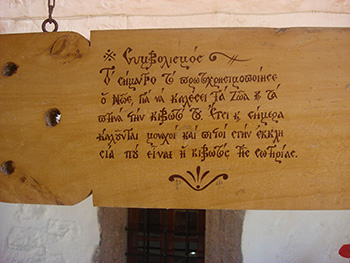 ※ Συμβολισμός
Τ̀ σήμαντρο τὸ πρωτοχρησιμοποίησε
ὁ Νῶε, γιά νά καλέσει τά Ζῶα κ̀ τά
πτηνά στήν κιβωτό τ̀. Ἔτσι κ̀ σήμερα
καλοῦνται μοναχοί καί πιστοί στήν ἐκκλη
σία πού εἶναι ἡ κιβωτός τῆς σωτηρίας.